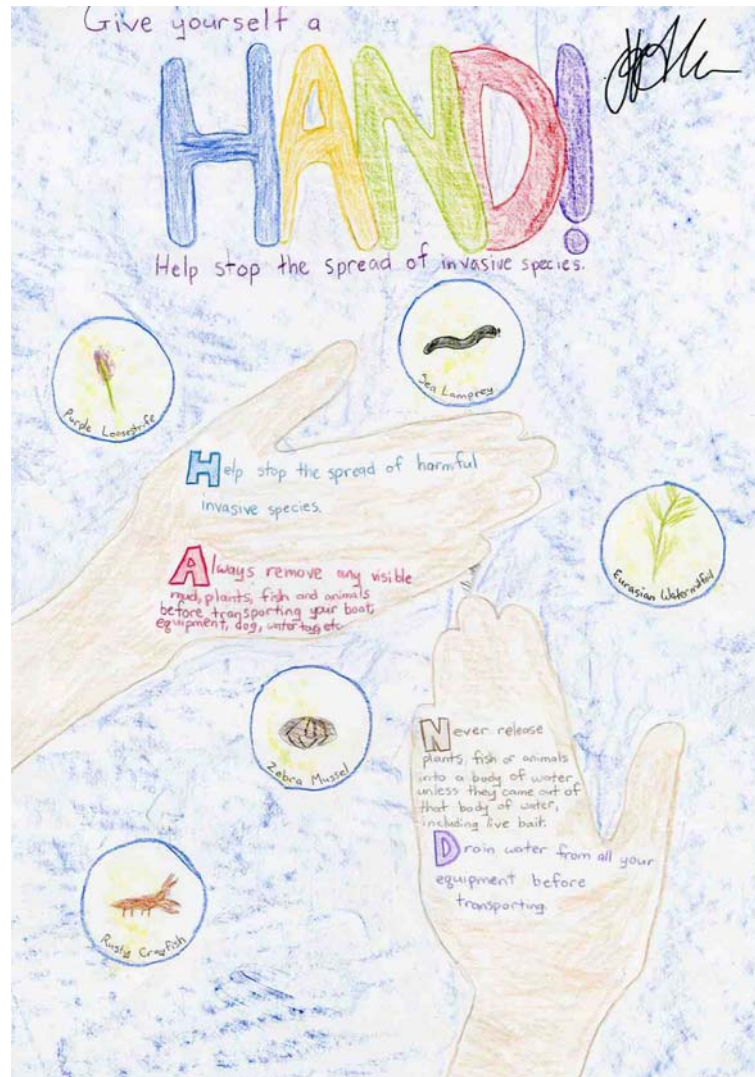 Give yourself a
HAND!
Help stop the spread of invasive species.
Sea Lamprey
Purple Loosestrife
Help stop the spread of harmful
invasive species.
Eurasian Watermilfoil
Always remove any visible
mud, plants, fish and animals
before transporting your boat,
equipment, dog, water toy, etc.
Zebra Mussel
Never release
plants, fish or animals
into a body of water
unless they came out of
that body of water,
including live bait.
Drain water from all your
equipment before
transporting
Rusty Crayfish